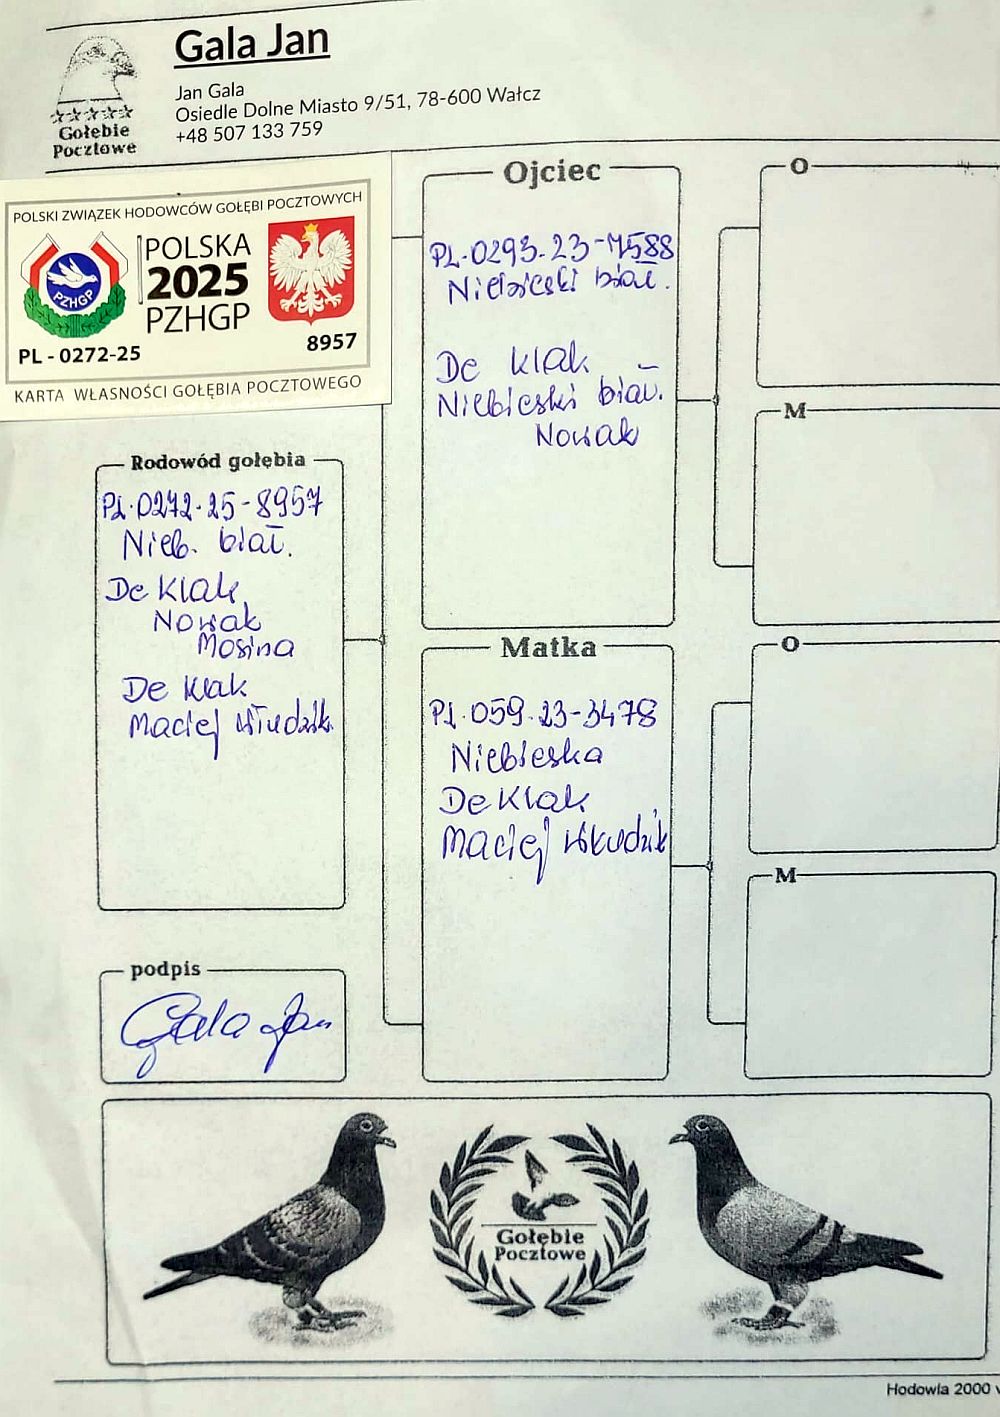 Gala Jan
Jan Gala
Osiedle Dolne Miasto 9/51, 78-600 Wałcz
+48 507 133 759
Gołębie
Pocztowe
POLSKI ZWIĄZEK HODOWCÓW GOŁĘBI POCZTOWYCH
PZHGP
POLSKA
2025
PZHGP
PL - 0272-25
8957
KARTA WŁASNOŚCI GOŁĘBIA POCZTOWEGO
Rodowód gołębia
PL.0272.25-8957
Nieb. biał.
De Klak
Nowak
Mosina
De Klak
Maciej
podpis
Gala Jan
Ojciec
PL.0293.23-7588
Niebieski biał.
De Klak
Niebieski biał.
Nowak
Matka
PL.059.23-3478
Niebieska
De Klak
Maciej
O
M
O
M
Gołębie
Pocztowe
Hodowla 2000